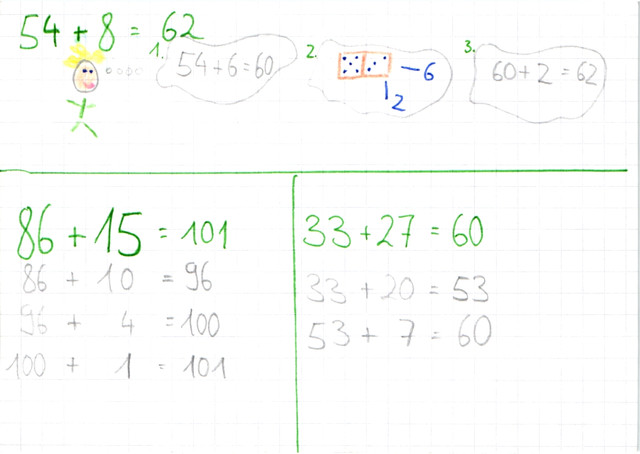 54 + 8 = 62
1. 54 + 6 = 60
2. - 6
2
3. 60 + 2 = 62
86 + 15 = 101
86 + 10 = 96
96 + 4 = 100
100 + 1 = 101
33 + 27 = 60
33 + 20 = 53
53 + 7 = 60